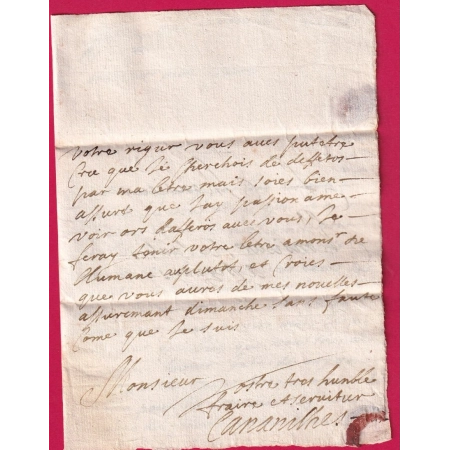 votre rigur vous aves putetre
Cre que Je cherchois de deffetos
par ma letre mais soies bien
assure que Jay passion a me
voir ors dafferos avec vous, Je
feray tenir votre letre a monsr de
Humane auplutot, et Croies
que vous aures de mes nouvelles
assurement dimanche sans faute
Come que Je suis
Monsieur
Vostre tres humble
fraire et servitur
Cananilhes